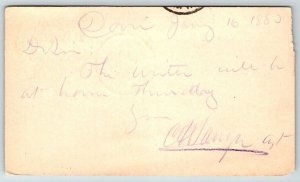 Jany 16 1883
Dr Sir:
The writer will be
at home Thursday
Yours
agt